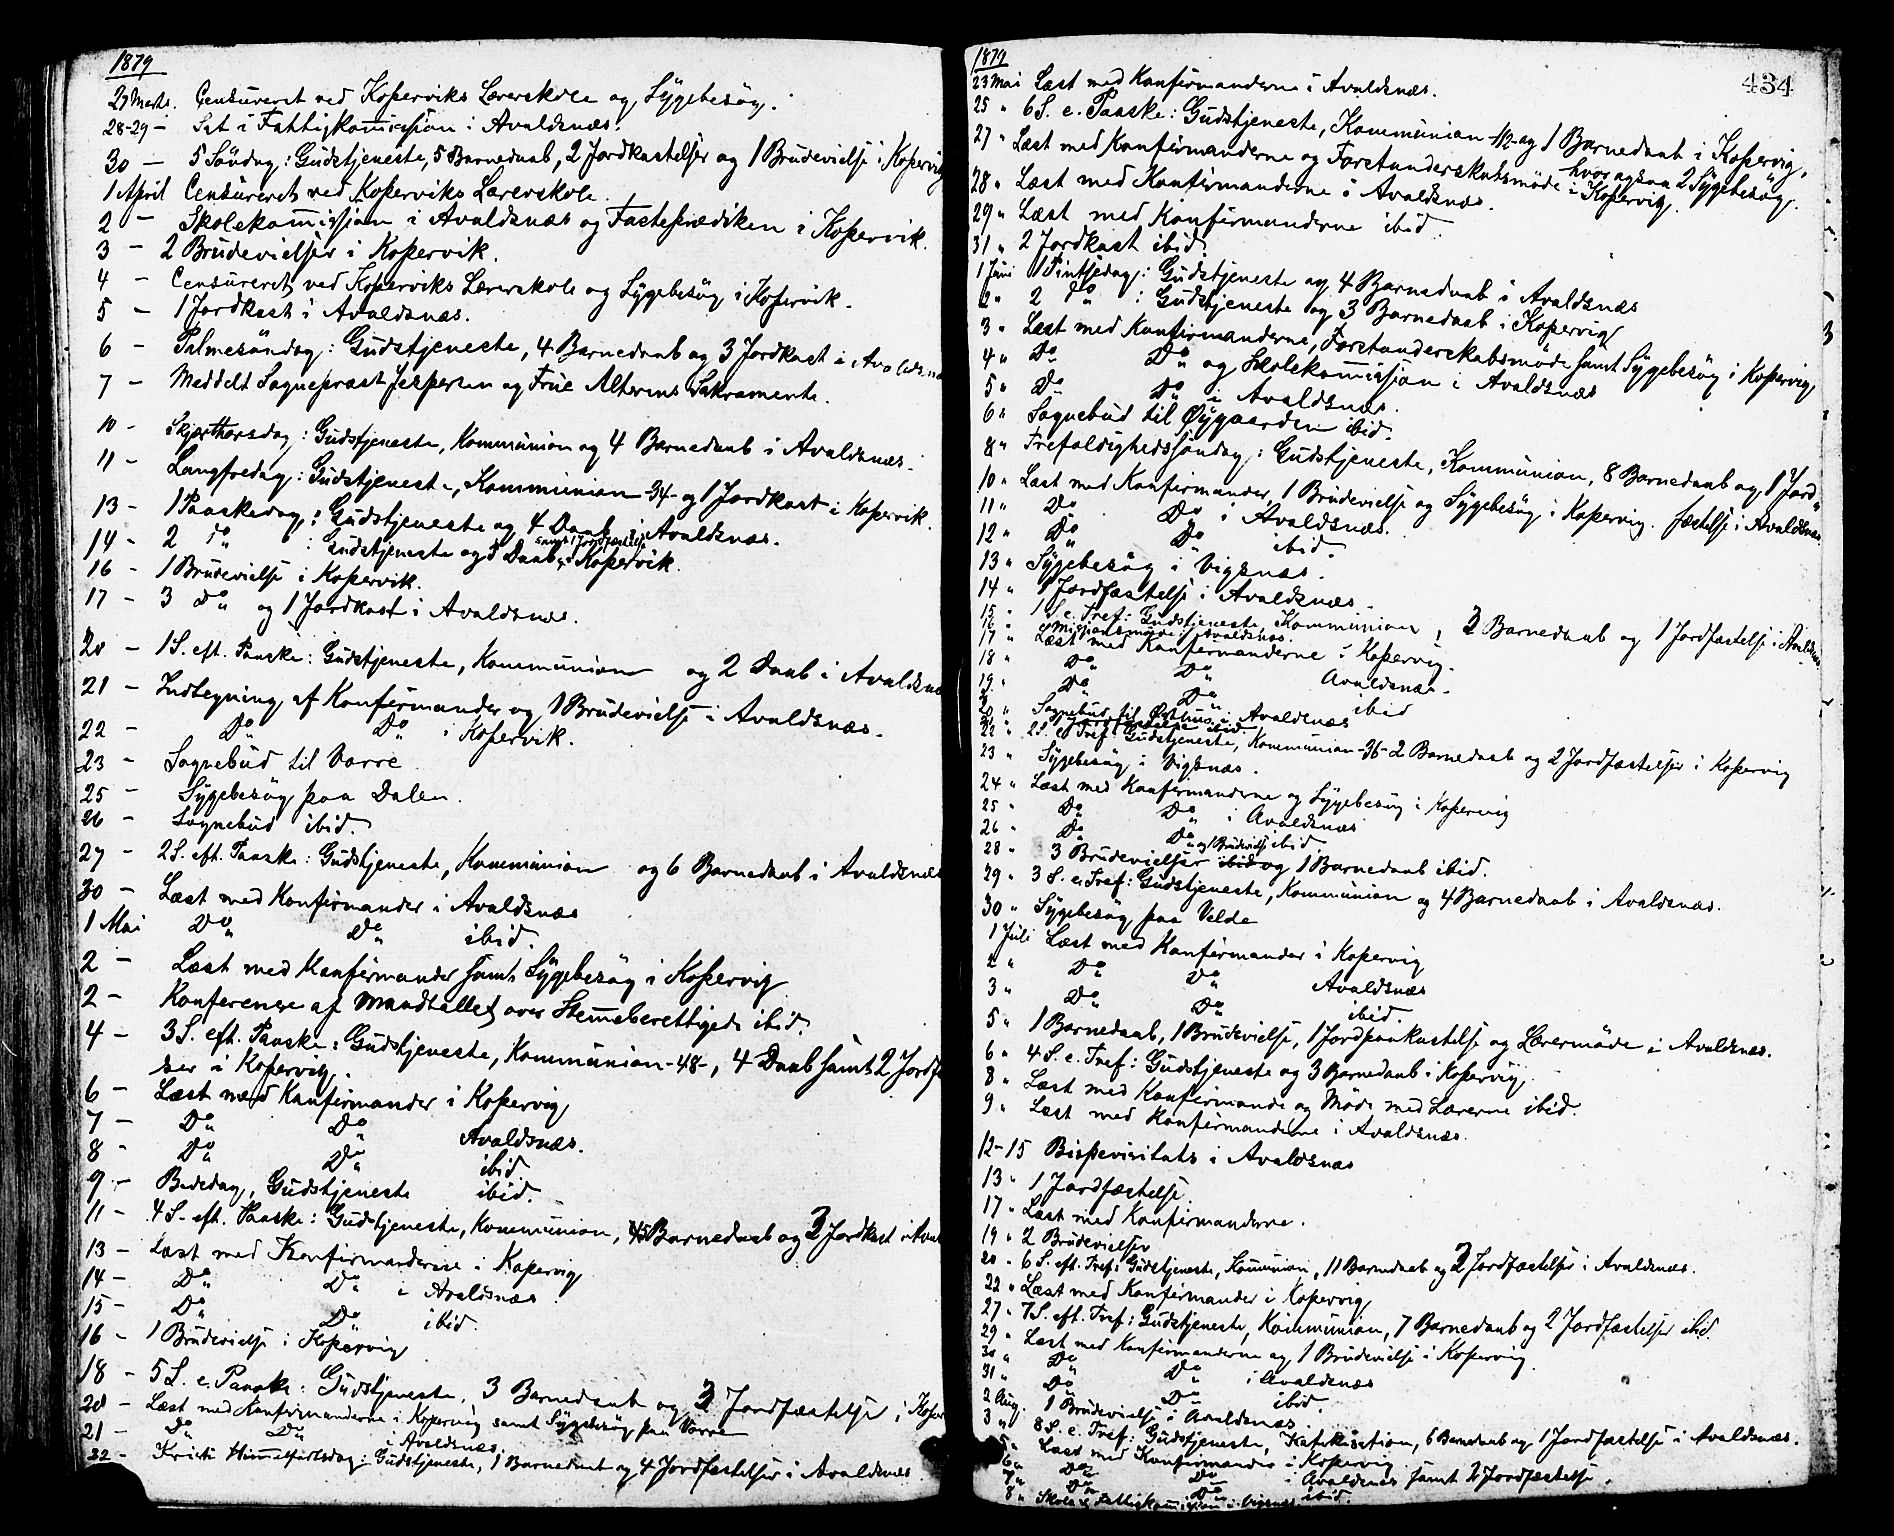 1879
27 Marts. Censureret ved Kopervik Lærerskole og Sygebesøg.
28-29 – Sat i Fattigkommission i Avaldsnæs.
30 – 5 Søndag: Gudstjeneste, 5 Barnedaab, 2 Jordkastelser og 1 Brudevielse i Kopervig
1 April Censureret ved Koperviks Lærerskole.
2 – Skolekommission i Avaldsnæs og Fasteprædiken i Kopervik.
3 – 2 Brudevielser i Kopervik.
4 – Censureret ved Koperviks Lærerskole og Sygebesøg i Kopervik.
5 – 1 Jordkast i Avaldsnæs.
6 – Palmesöndag: Gudstjeneste, 4 Barnedaab og 3 Jordkast i Avaldsnæ
7 – Meddelt Sogneprest Jespersen og Frue Alterens Sakramente.
10 – Skjærthorsdag: Gudstjeneste, Kommunion og 4 Barnedaab i Avaldsnæs.
11 – Langfredag: Gudstjeneste, Kommunion -34- og 1 Jordkast i Kopervik.
13 – 1 Paaskedag: Gudstjeneste og 4 Daab i Avaldsnæs.
14 – 2 do : Gudstjeneste og 5 Daab samt 1 Jordfæstelse i Kopervik.
16 – 1 Brudevielse i Kopervik.
17 – 3 do og 1 Jordkast i Avaldsnæs.
20 – 1 S. eft. Paaske: Gudstjeneste, Kommunion og 2 Daab i Avaldsnæ
21 – Indtegning af Konfirmander og 1 Brudevielse i Avaldsnæs.
22 – Do Do i Kopervik.
23 – Sognebud til Vorre
25 – Sygebesøg paa Dalen.
26 – Sognebud ibid.
27 – 2 S. eft. Paaske: Gudstjeneste, Kommunion og 6 Barnedaab i Avaldsnæs
30 – Læst med Konfirmander i Avaldsnæs
1 Mai Do Do ibid.
2 – Læst med Konfirmander samt Sygebesøg i Kopervig
2 – Konference af Mandtallet over Stemmeberettigede ibid.
4 – 3 S. eft. Paaske: Gudstjeneste, Kommunion -48-, 4 Daab samt 2 Jordf
ser i Kopervig.
6 – Læst med Konfirmander i Kopervig
7 – Do Do Avaldsnæs.
8 – Do Do ibid
9 – Bededag, Gudstjeneste ibid.
11 – 4 S. eft. Paaske: Gudstjeneste, Kommunion, 5 Barnedaab og 3 Jordkast i Aval
13 – Læst med Konfirmanderne i Kopervig
14 – Do Do i Avaldsnæs.
15 – Do Do ibid.
16 – 1 Brudevielse i Kopervig
18 – 5 S. e. Paaske: Gudstjeneste, 3 Barnedaab og 2 Jordfæstelse i Koper
20 – Læst med Konfirmanderne i Kopervig samt Sygebesøg paa Vorre
21 – Do Do i Avaldsnæs
22 – Kristi Himmelfartsdag: Gudstjeneste, 1 Barnedaab og 4 Jordfæstelser i Avaldsnæs
434
1879
23 Mai Læst med Konfirmanderne i Avaldsnæs.
25 " 6 S. e. Paaske: Gudstjeneste, Kommunion og 1 Barnedaab i Kopervig, hvor ogsaa 2 Sygebesøg.
27 " Læst med Konfirmanderne og Forstanderskabsmöde i Kopervig.
28 " Læst med Konfirmanderne i Avaldsnæs.
29 " Læst med Konfirmanderne ibid.
31 " 2 Jordkast ibid.
1 Juni 1 Pintsedag: Gudstjeneste og 4 Barnedaab i Avaldsnæs
2 " 2 do : Gudstjeneste og 3 Barnedaab i Kopervig
3 " Læst med Konfirmanderne, Forstanderskabsmöde samt Sygebesøg i Kopervig,
4 " Do Do og Skolekommission i Avaldsnæs
5 " Do Do i Avaldsnæs.
6 " Sognebud til Øygaarden ibid.
8 " Trefoldighedssöndag: Gudstjeneste, Kommunion, 8 Barnedaab og 1 Jord-
fæstelse i Avaldsnæs
10 " Læst med Konfirmander, 1 Brudevielse og Sygebesøg i Kopervig.
11 " Do Do i Avaldsnæs.
12 " Do Do ibid.
13 " Sygebesøg i Vigsnæs.
14 " 1 Jordfæstelse i Avaldsnæs
15 " 1 S. e. Tref: Gudstjeneste, Kommunion, 2 Barnedaab og 1 Jordfæstelse i Avaldsnæs
16 " Missionsmöde i Avaldsnæs.
17 " Læst med Konfirmanderne i Kopervig.
18 " Do Do Avaldsnæs.
19 " Do Do ibid
20 " Sognebud til i Avaldsnæs
21 " 1 Jordfæstelse ibid.
22 " 2 S. e. Tref: Gudstjeneste, Kommunion -36- 2 Barnedaab og 2 Jordfæstelser i Kopervig
23 " Sygebesøg i Vigsnæs.
24 " Læst med Konfirmanderne og Sygebesøg i Kopervig
25 " Do Do i Avaldsnæs
26 " Do Do og 1 Brudevielse ibid.
28 " 3 Brudevielser ibid og 1 Barnedaab ibid.
29 " 3 S. e. Tref: Gudstjeneste, Kommunion og 4 Barnedaab i Avaldsnæs.
30 " Sygebesøg paa Velde
1 Juli Læst med Konfirmander i Kopervig
2 " Do Do Avaldsnæs
3 " Do Do ibid.
5 " 1 Barnedaab, 1 Brudevielse, 1 Jordpaakastelse og Lærermöde i Avaldsnæs.
6 " 4 S. e. Tref: Gudstjeneste og 3 Barnedaab i Kopervig
8 " Læst med Konfirmande og Möde med Lærerne ibid.
9 " Læst med Konfirmanderne i Avaldsnæs.
12-15 Bispevisitats i Avaldsnæs
13 " 1 Jordfæstelse.
17 " Læst med Konfirmanderne.
19 " 2 Brudevielser
20 " 6 S. eft. Tref: Gudstjeneste, Kommunion, 11 Barnedaab og 2 Jordfæstelser i Avaldsnæs.
22 " Læst med Konfirmander i Kopervig
27 " 7 S. eft. Tref: Gudstjeneste, Kommunion, 7 Barnedaab og 2 Jordfæstelser ibid.
29 " Læst med Konfirmanderne og 1 Brudevielse i Kopervig.
30 " Do Do i Avaldsnæs
31 " Do Do ibid.
2 Aug. 1 Brudevielse i Avaldsnæs.
3 " 8 S. e. Tref: Gudstjeneste, Katekisation, 6 Barnedaab og 1 Jordfæstelse i Avaldsnæs.
5 " Læst med Konfirmander i Kopervig
6 " Do Do i Avaldsnæs samt 2 Jordfæstelse.
7 " Do Do ibid.
8 " Skole & Fattigkommission i Vigsnæs